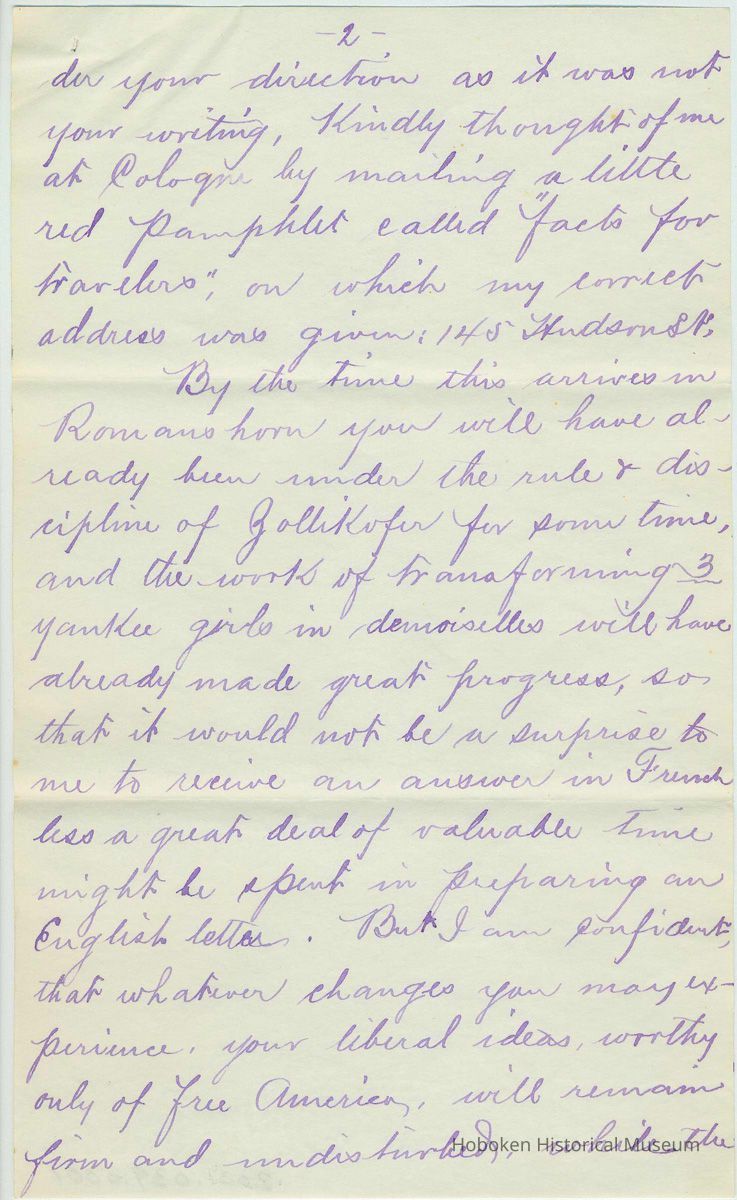 -2-
der your direction as it was not
your writing, Kindly thought of me
at Cologne by mailing a little
red Pamphlet called "facts for
travelers", on which my correct
address was given: 145 Hudson St.
By the time this arrives in
Romanshorn you will have al-
ready been under the rule & dis-
cipline of Zollikofer for some time,
and the work of transforming 3
yankee girls in demoiselles will have
already made great progress, so
that it would not be a surprise to
me to receive an answer in French
less a great deal of valuable time
might be spent in preparing an
English letter. But I am confident,
that whatever changes you may ex-
perience, your liberal ideas, worthy
only of free America, will remain
firm and undisturbed, while the
Hoboken Historical Museum